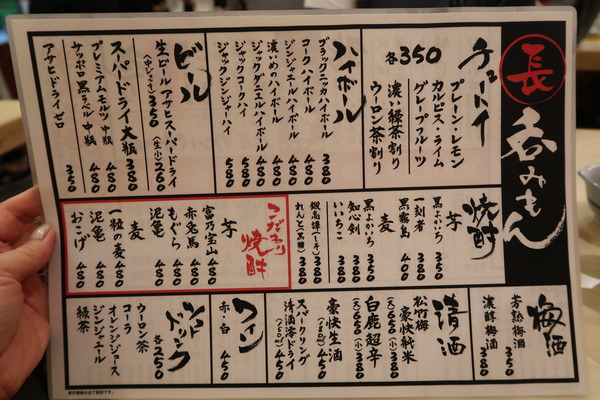 長
呑みもん
チューハイ
各350
プレーン・レモン
カルピス・ライム
グレープフルーツ
濃い緑茶割り
ウーロン茶割り
ハイボール
ブラックニッカハイボール 380
コークハイボール 480
ジンジャエールハイボール 480
濃いめのハイボール 480
ジャックダニエルハイボール 480
ジャックコークハイ 580
ジャックジンジャーハイ 580
ビール
生ビール アサヒスーパードライ
(中ジョッキ) 350 (生小) 200
スーパードライ大瓶 380
プレミアムモルツ 中瓶 480
サッポロ黒ラベル 中瓶 480
アサヒドライゼロ 350
焼酎
芋
黒よかいち 350
一刻者 480
黒霧島 400
麦
黒よかいち 350
知心剣 480
いいちこ 380
鍛高譚(しそ) 380
れんと(黒糖) 380
こだわり焼酎
芋
富乃宝山 480
赤兎馬 480
もぐら 480
泥亀 480
麦
一粒の麦 480
泥亀 480
おこげ 480
梅酒
若熟梅酒 350
濃醇梅酒 380
清酒
松竹梅
豪快純米
(大)650 (小)380
白鹿超辛
(大)650 (小)380
豪快生酒
(300ml) 450
スパークリング
清酒澪ドライ
(300ml) 450
ワイン
赤・白 450
ソフトドリンク
各250
ウーロン茶
コーラ
オレンジジュース
ジンジャエール
緑茶